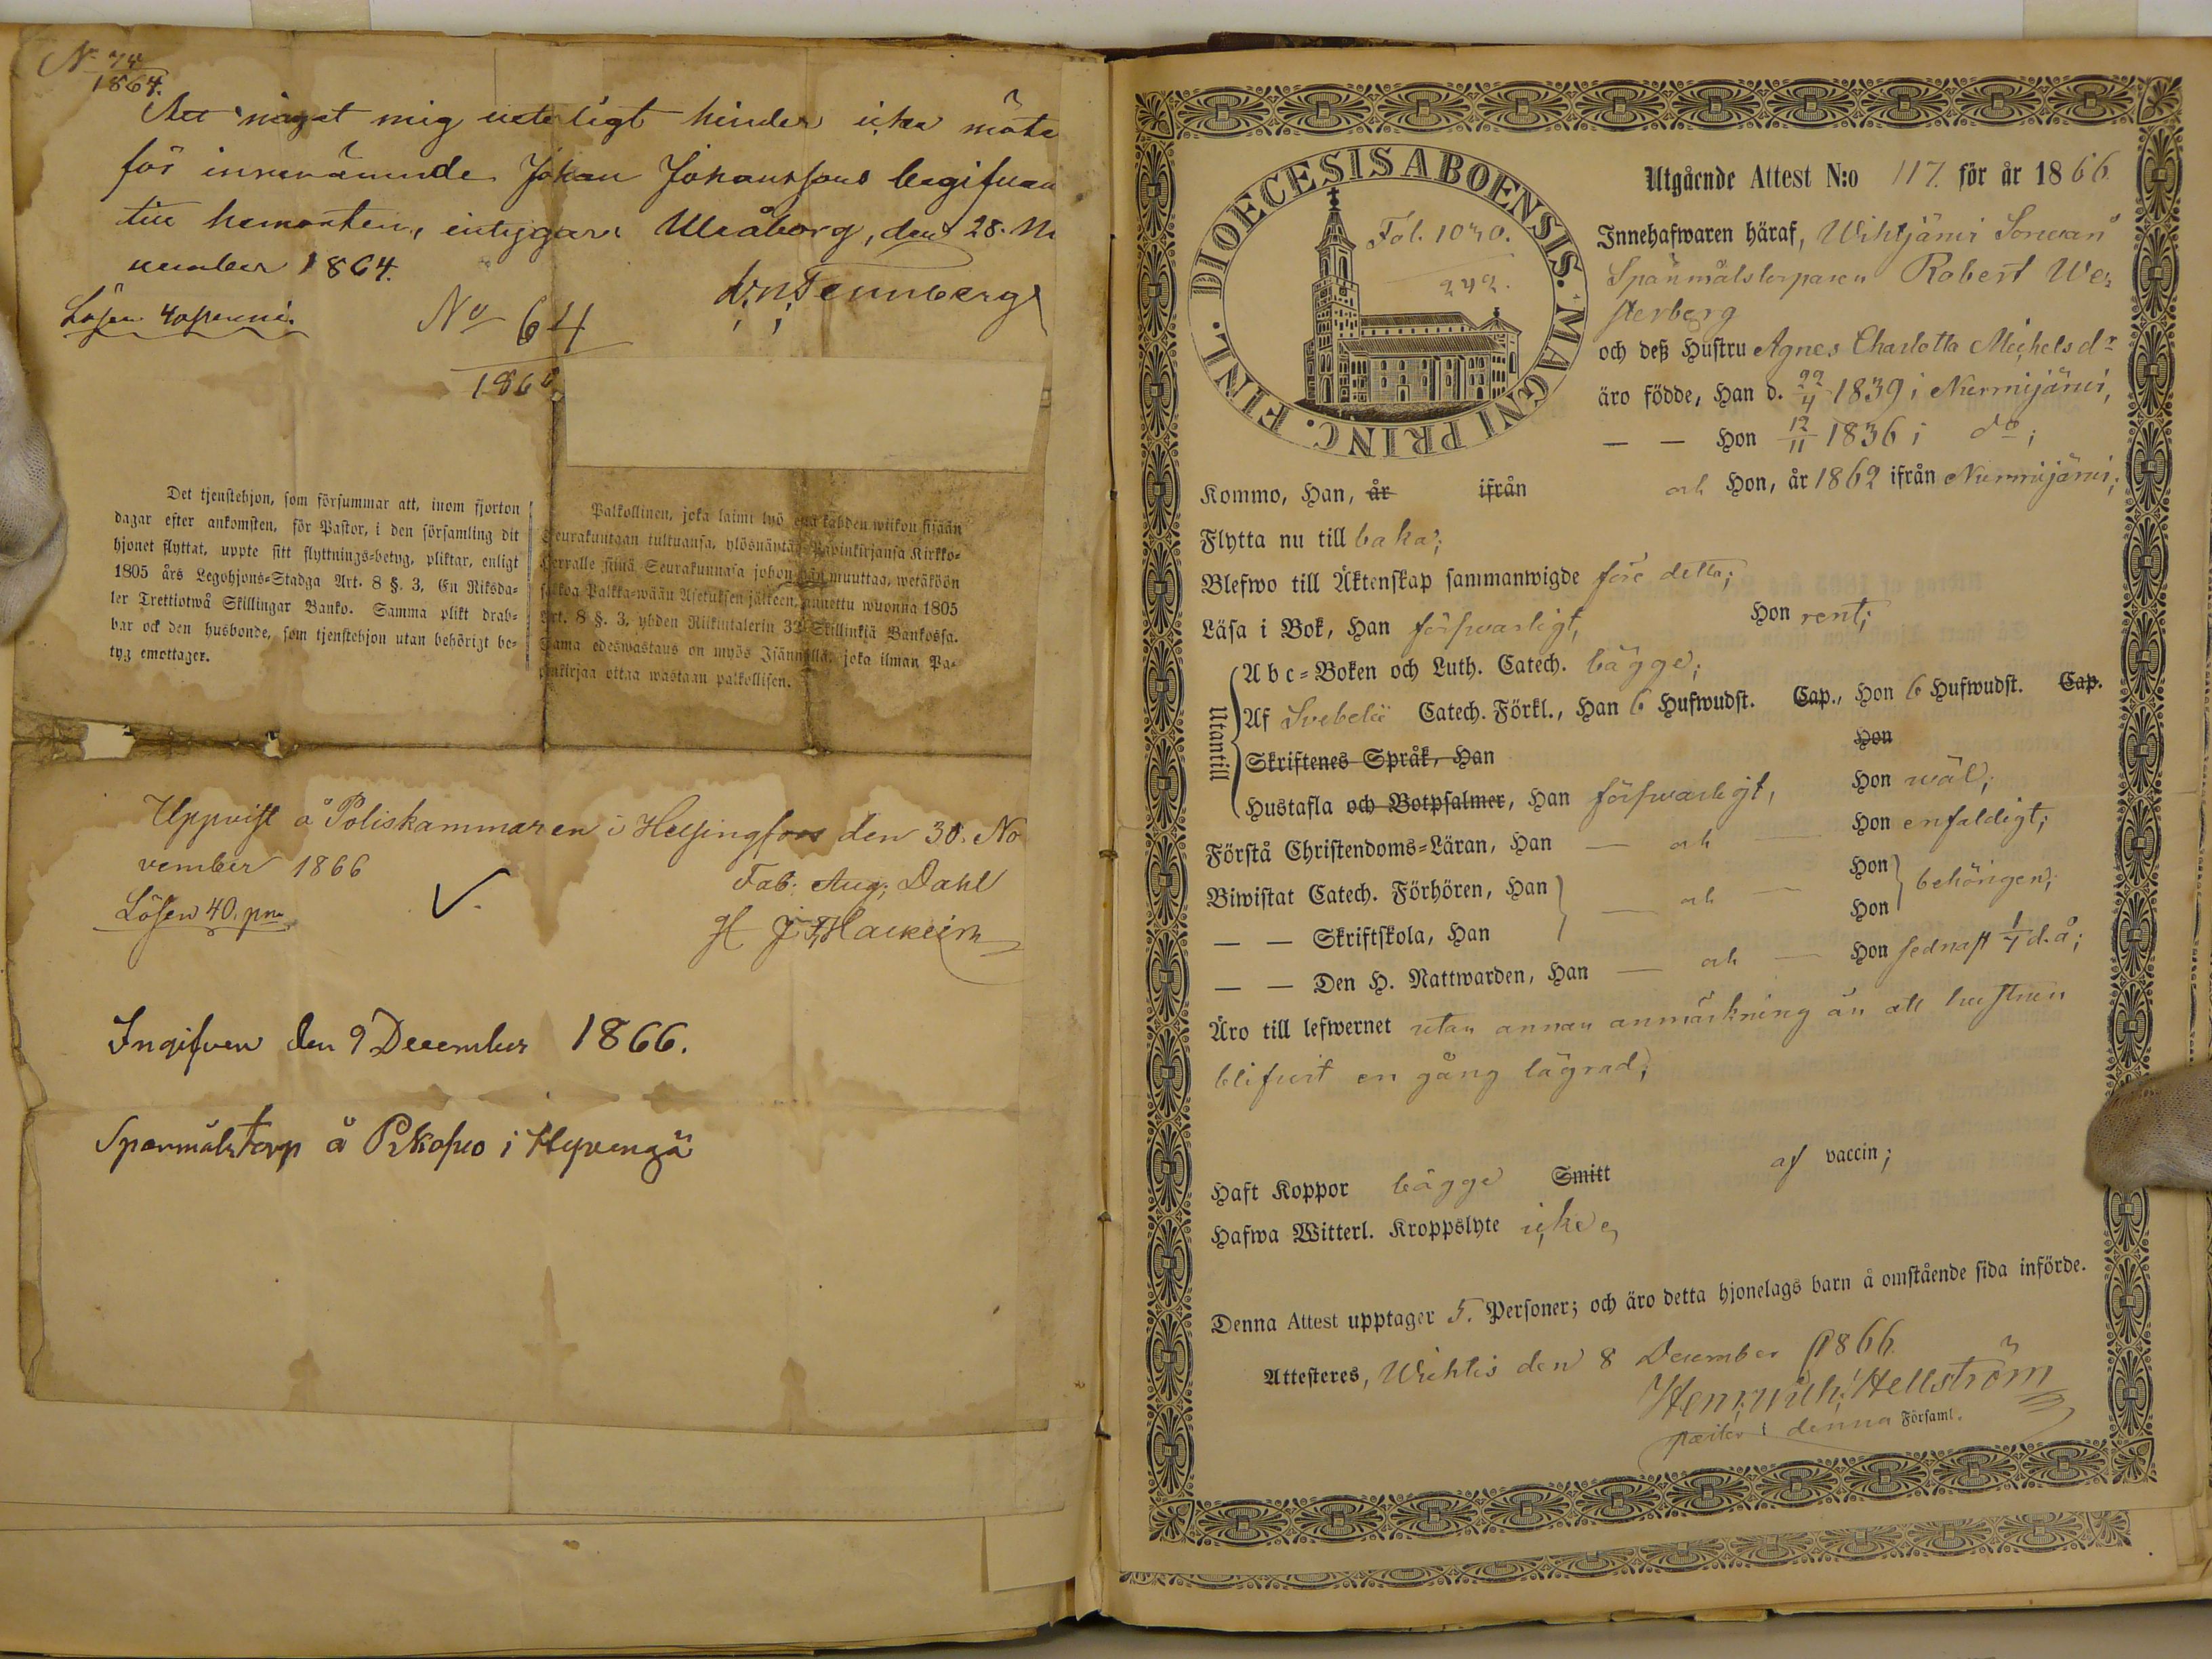 N 78
1864.
Att något mig veterligt hinder icke möte
för innevarande Johan Johanssons begifvan
till hemorten, intygar: Uleåborg, den 28. No
vember 1864.
Lösen 40 penni.
No 64
1866
Det tjenstehjon, som försummar att, inom fjorton
dagar efter ankomsten, för Pastor, i den församling dit
hjonet flyttat, uppte sitt flyttnings-betyg, pliktar, enligt
1805 års Legohjons-Stadga Art. 8 §. 3, En Riksda-
ler Trettiotwå Skillingar Banko. Samma plikt drab-
bar ock den husbonde, som tjenstehjon utan behörigt be-
tyg emottager.
Palkollinen, joka laimi lyö että kahden wiikon sisään
Seurakuntaan tultuansa, ylösnäyttää Papinkirjansa Kirkko-
herralle siinä Seurakunnasa johon hän muuttaa, wetäköön
sakkoa Palkka-wään Asetuksen jälkeen, annettu wuonna 1805
Art. 8 §. 3, yhden Riikintalerin 32 Skillinkiä Bankossa.
Sama edeswastaus on myös Isännällä, joka ilman Pa-
pinkirjaa ottaa wastaan palkollisen.
Uppvist å Poliskammaren i Helsingfors den 30. No
vember 1866
Fab: Aug; Dahl
Lösen 40. pni
Ingifven den 9 December 1866.
Sparmålstorp å Pikopio i Hyvengä
DIOECESIS ABOENSIS. MAGNI PRINC. FINL.
Fol. 1030.
242.
Utgående Attest N:o 117. för år 1866.
Innehafwaren häraf, Wihtjärwi Sonwan
Spanmålstorparen Robert We-
sterberg
och deß Hustru Agnes Charlotta Michelsdr
äro födde, Han d. 22/4 1839 i Nurmijärwi,
— — Hon 12/11 1836 i do;
Kommo, Han, år ifrån och Hon, år 1862 ifrån Nurmijärwi;
Flytta nu till baka;
Blefwo till Äktenskap sammanwigde före detta;
Läsa i Bok, Han försvarligt, Hon rent;
Utantill
A b c-Boken och Luth. Catech. bägge;
Af Svebelii Catech. Förkl., Han 6 Hufwudst. Cap., Hon 6 Hufwudst. Cap.
Skriftenes Språk, Han Hon
Hustafla och Botpsalmer, Han försvarligt, Hon wäl;
Förstå Christendoms-Läran, Han — och — Hon enfaldigt;
Biwistat Catech. Förhören, Han — och — Hon behörigen;
— — Skriftskola, Han Hon
— — Den H. Nattwarden, Han — och — Hon sednast 1/7 d.å;
Äro till lefwernet utan annan anmärkning än att hustrun
blifvit en gång lägrad;
Haft Koppor bägge Smitt af vaccin;
Hafwa Witterl. Kroppslyte icke,
Denna Attest upptager 5. Personer; och äro detta hjonelags barn å omstående sida införde.
Attesteres, Wichtis den 8 December 1866.
Henr. Wilh. Hellström
pastor i denna Församl.